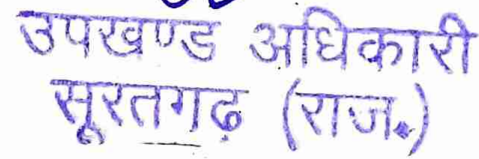 उपखण्ड अधिकारी
सूरतगढ (राज.)